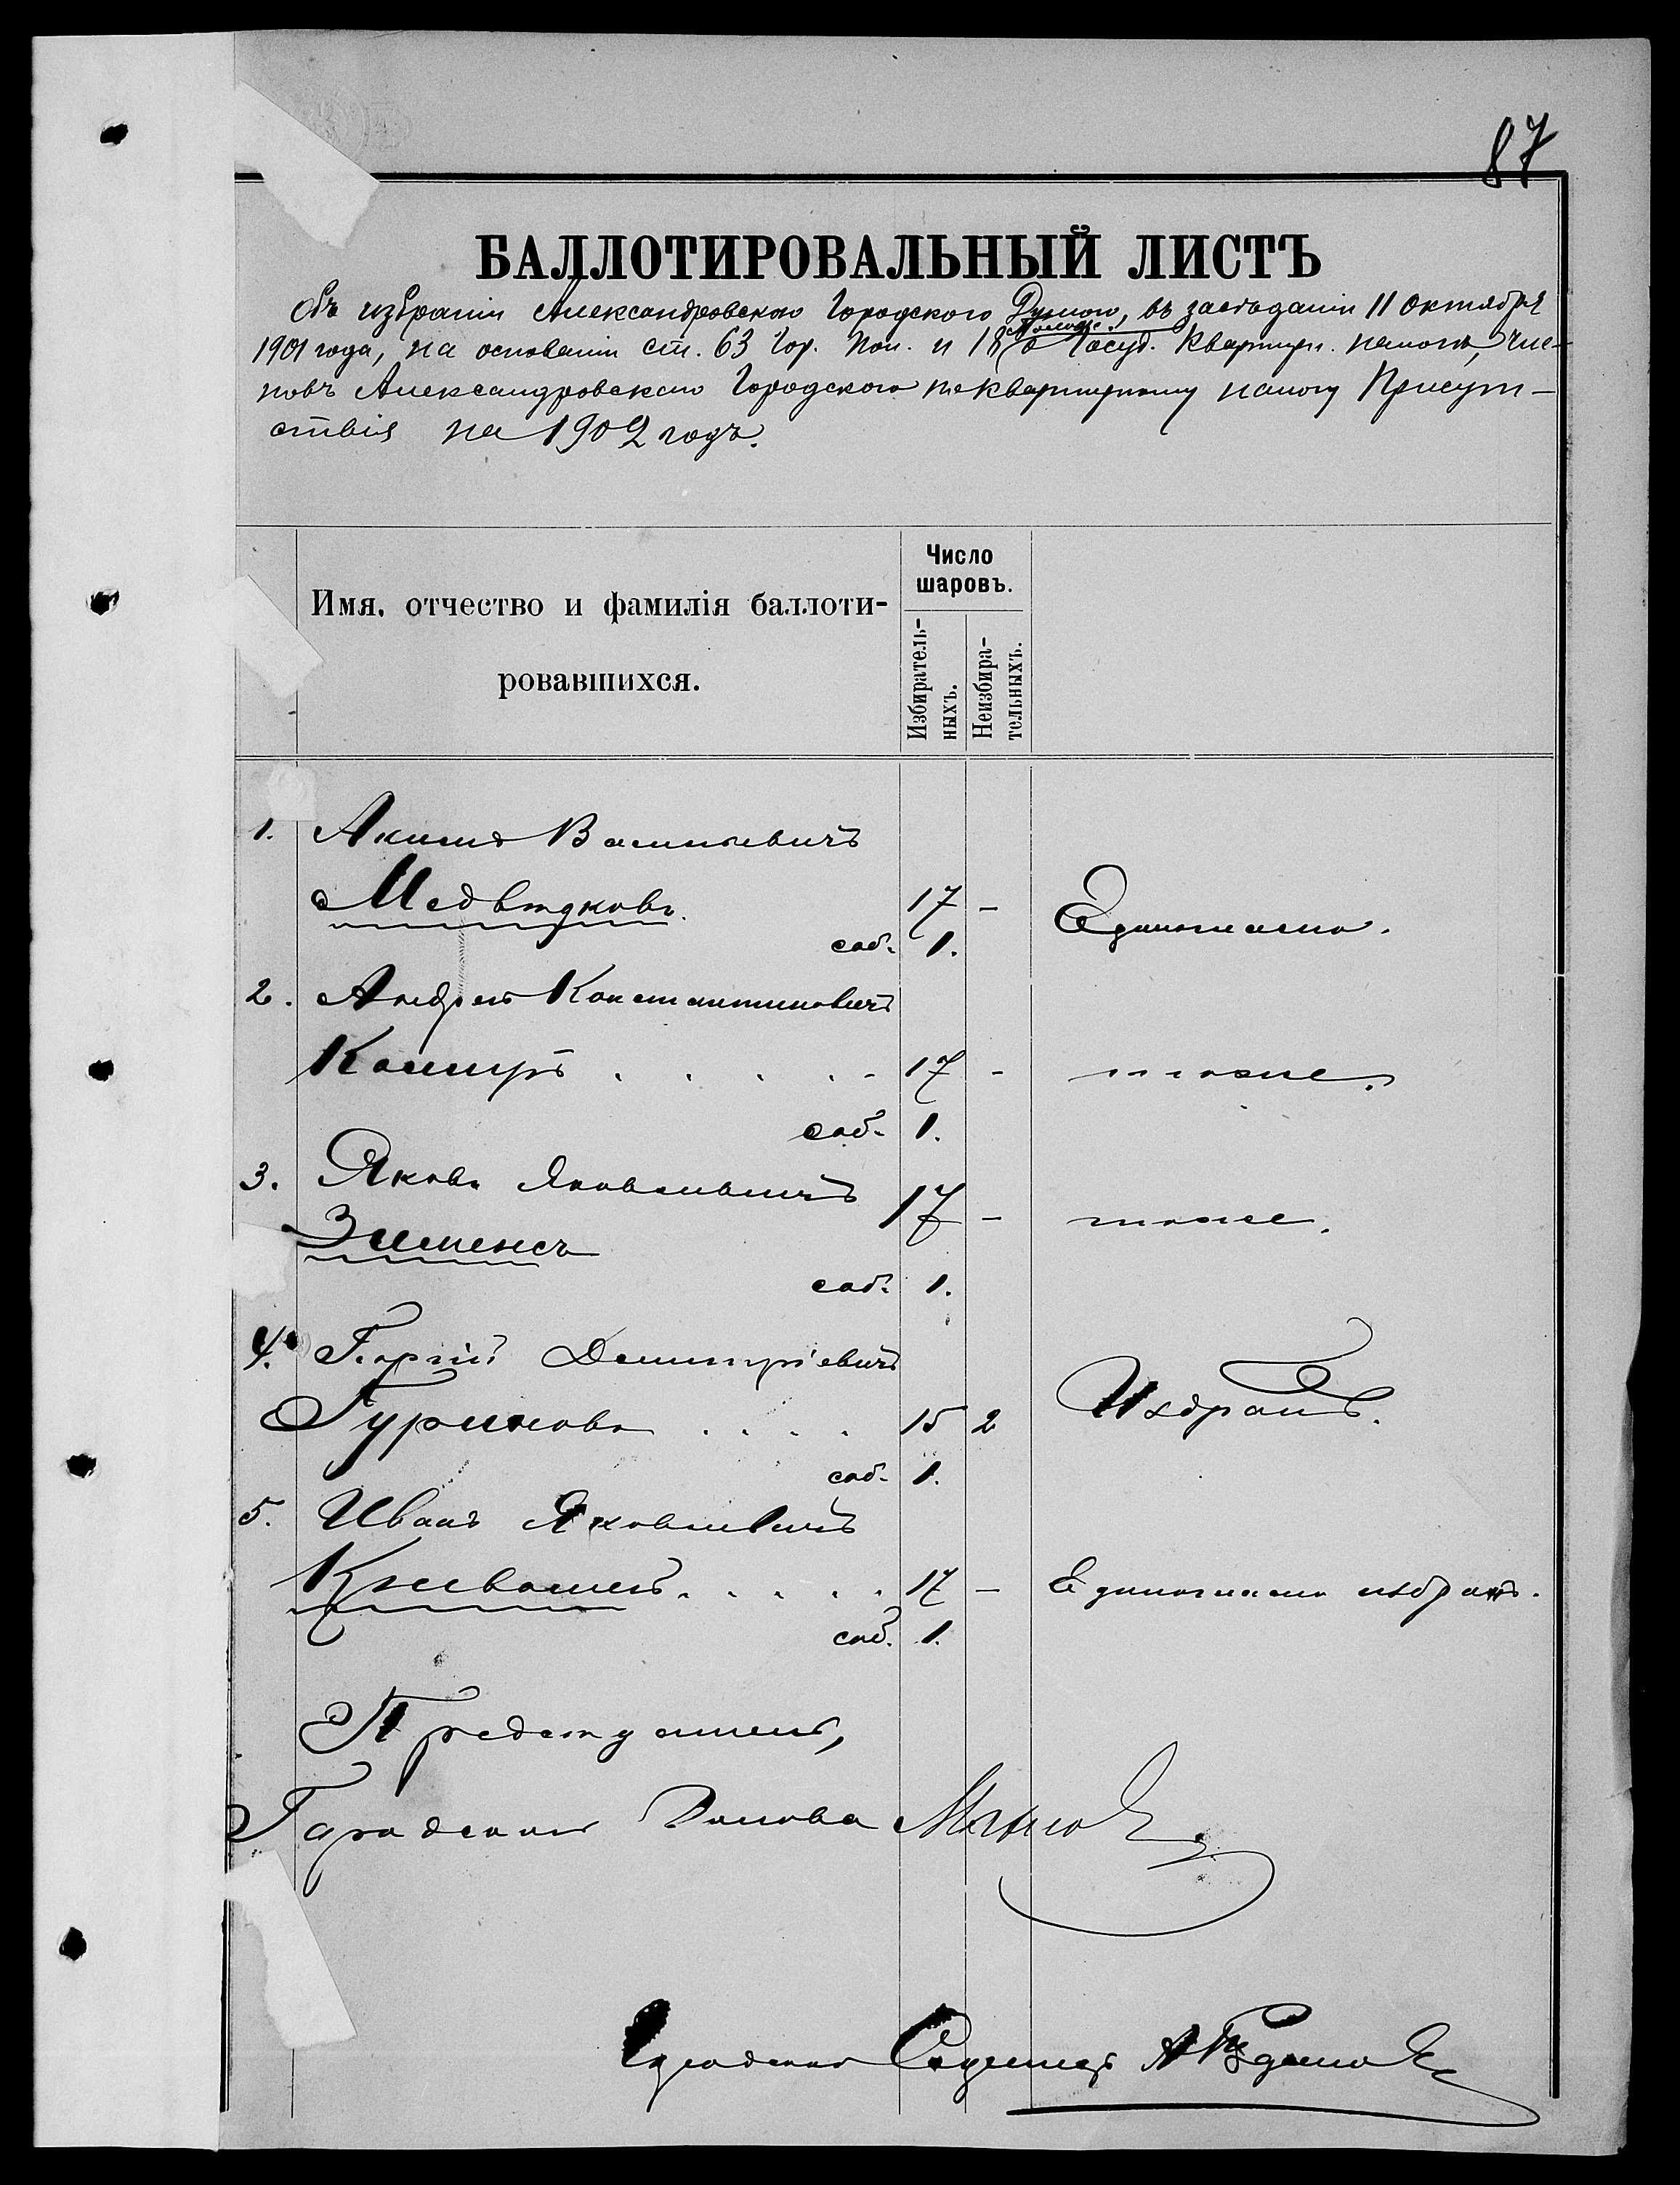 87
БАЛЛОТИРОВАЛЬНЫЙ ЛИСТЪ
Объ избраніи Александровскою Городскою Думою, въ засѣданіи 11 октября
1901 года, на основаніи ст. 63 Гор. Пол. и 18 о Госуд. Квартирн. налогѣ, чле-
новъ Александровскаго Городского по квартирному налогу Присут-
ствія на 1902 годъ.
Имя, отчество и фамилія баллоти-
ровавшихся.
Число
шаровъ.
Избиратель-
ныхъ.
Неизбира-
тельныхъ.
1. Акимъ Васильевичъ
Медвѣдковъ. 17 – Единогласно.
соб. 1.
2. Андрей Константиновичъ
17 - тоже.
соб. 1.
3. Яковъ Яковлевичъ 17 – тоже.
Зименсъ
соб. 1.
4. Георгій Дмитріевичъ
Гуриновъ . . . . 15 2 Избранъ.
соб. 1.
5. Иванъ Яковлевичъ
17 – Единогласно избранъ.
соб. 1.
Предсѣдатель,
Городской Голова
Городской Секретарь